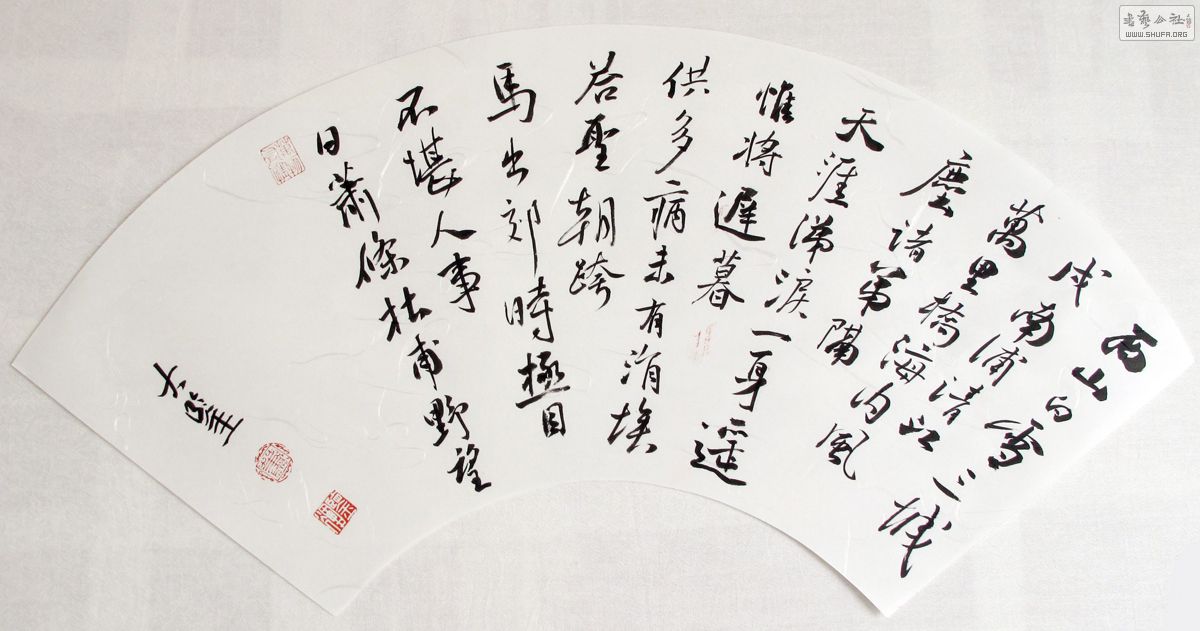 西山白雪三城
戍南浦清江
萬里橋海內風
塵諸弟隔
天涯涕淚一身遙
惟將遲暮
供多病未有涓埃
荅聖朝跨
馬出郊時極目
不堪人事
日蕭條杜甫野望
書藝公社
WWW.SHUFA.ORG